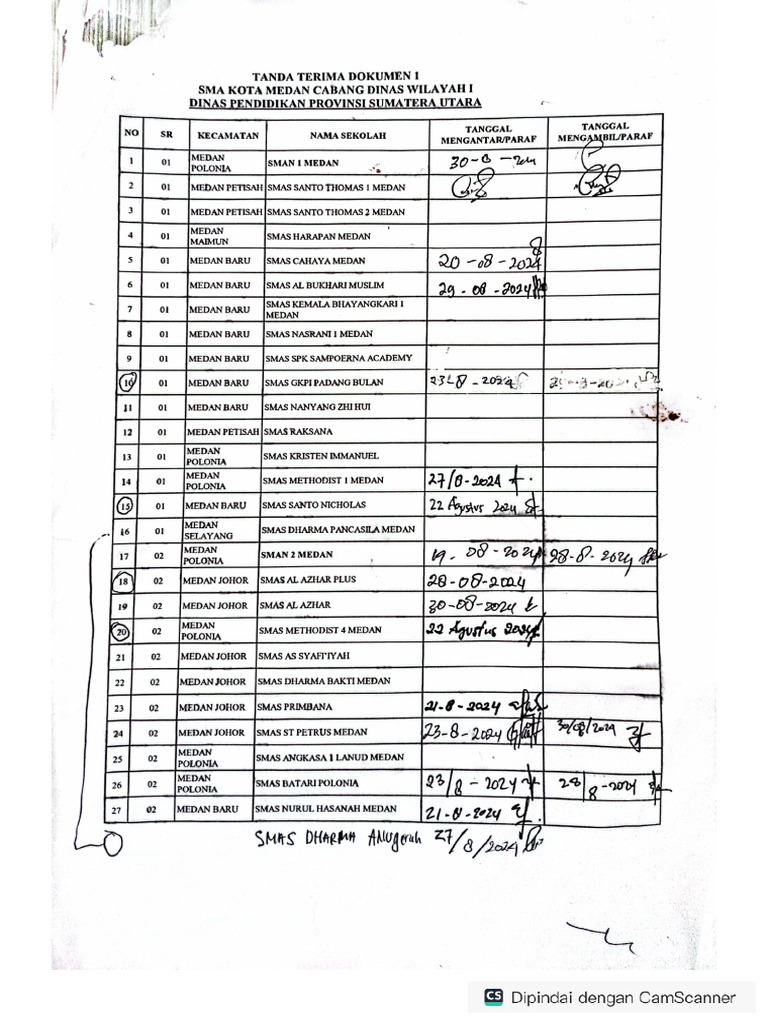 TANDA TERIMA DOKUMEN 1
SMA KOTA MEDAN CABANG DINAS WILAYAH I
DINAS PENDIDIKAN PROVINSI SUMATERA UTARA
NO SR KECAMATAN NAMA SEKOLAH TANGGAL MENGANTAR/PARAF TANGGAL MENGAMBIL/PARAF
1 01 MEDAN POLONIA SMAN 1 MEDAN
2 01 MEDAN PETISAH SMAS SANTO THOMAS 1 MEDAN
3 01 MEDAN PETISAH SMAS SANTO THOMAS 2 MEDAN
4 01 MEDAN MAIMUN SMAS HARAPAN MEDAN
5 01 MEDAN BARU SMAS CAHAYA MEDAN 20-08-2024
6 01 MEDAN BARU SMAS AL BUKHARI MUSLIM 29-08-2024
7 01 MEDAN BARU SMAS KEMALA BHAYANGKARI 1 MEDAN
8 01 MEDAN BARU SMAS NASRANI 1 MEDAN
9 01 MEDAN BARU SMAS SPK SAMPOERNA ACADEMY
10 01 MEDAN BARU SMAS GKPI PADANG BULAN 23-8-2024
11 01 MEDAN BARU SMAS NANYANG ZHI HUI
12 01 MEDAN PETISAH SMAS RAKSANA
13 01 MEDAN POLONIA SMAS KRISTEN IMMANUEL
14 01 MEDAN POLONIA SMAS METHODIST 1 MEDAN 27/8-2024
15 01 MEDAN BARU SMAS SANTO NICHOLAS 22 Agustus 2024
16 01 MEDAN SELAYANG SMAS DHARMA PANCASILA MEDAN
17 02 MEDAN POLONIA SMAN 2 MEDAN 19-08-2024 28-8-2024
18 02 MEDAN JOHOR SMAS AL AZHAR PLUS 28-08-2024
19 02 MEDAN JOHOR SMAS AL AZHAR 30-08-2024
20 02 MEDAN POLONIA SMAS METHODIST 4 MEDAN 22 Agustus 2024
21 02 MEDAN JOHOR SMAS AS SYAFI'IYAH
22 02 MEDAN JOHOR SMAS DHARMA BAKTI MEDAN
23 02 MEDAN JOHOR SMAS PRIMBANA 21-8-2024
24 02 MEDAN JOHOR SMAS ST PETRUS MEDAN 23-8-2024 30/08/2024
25 02 MEDAN POLONIA SMAS ANGKASA 1 LANUD MEDAN
26 02 MEDAN POLONIA SMAS BATARI POLONIA 23/8-2024 28/8-2024
27 02 MEDAN BARU SMAS NURUL HASANAH MEDAN 21-8-2024
SMAS DHARMA ANUgerah 27/8/2024
CS Dipindai dengan CamScanner